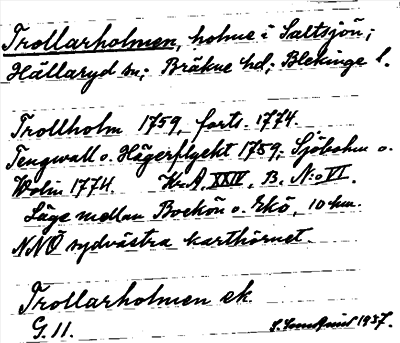 Trollarholmen, holme i Saltsjön;
Hällaryd sn; Bräkne hd; Blekinge l.
Trollholm 1759, forts. 1774.
Tengwall o. Hägerflycht 1759; Sjöbohm o.
Wolin 1774. Kr. A. XXIV, B. N:o VI.
Läge mellan Bockön o. Ekö, 10 km.
NNÖ sydvästra karthörnet.
Trollarholmen ek.
G. 11. 1937.